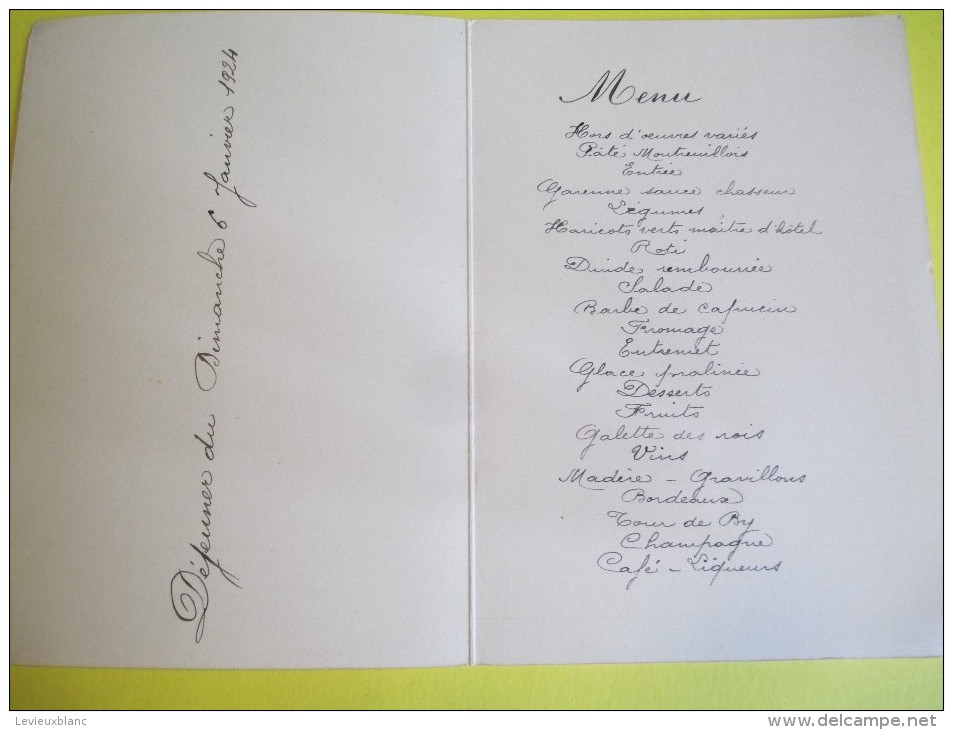 Déjeuner du Dimanche 6 Janvier 1924
Menu
Hors d'oeuvres variés
Pâté Montreuillois
Entrée
Garenne sauce chasseur
Légumes
Haricots verts maître d'hôtel
Roti
Dinde rembourrée
Salade
Barbe de capucin
Fromage
Entremet
Glace pralinée
Desserts
Fruits
Galette des rois
Vins
Madère - Gravillons
Bordeaux
Tour de By
Champagne
Café - Liqueurs
Levieuxblanc
www.delcampe.net